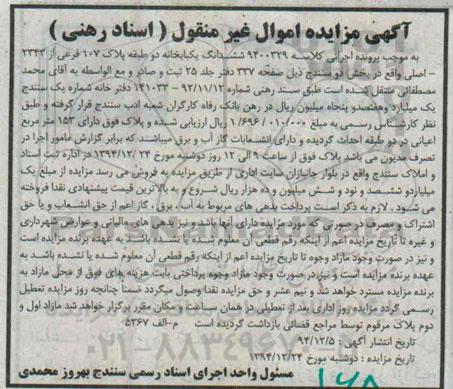 آگهی مزایده اموال غیر منقول ( اسناد رهنی )
به موجب پرونده اجرائی کلاسه ۹۴۰۰۳۲۹ ششدانگ یکبابخانه دو طبقه پلاک ۱۰۷ فرعی از ۲۳۴۳
- اصلی واقع در بخش دو سنندج ذیل صفحه ۳۳۷ دفتر جلد ۲۵ ثبت و صادر و مع الواسطه به آقای محمد
مصطفائی منتقل شده است طبق سند رهنی شماره ۹۲/۱۱/۱۲ – ۱۴۱۰۳۳ دفتر خانه شماره یک سنندج
یک میلیارد وهفتصدو پنجاه میلیون ریال در رهن بانک رفاه کارگران شعبه ادب سنندج قرار گرفته و طبق
نظر کارشناس رسمی به مبلغ ۱/۶۹۶/۰۱۰/۰۰۰ ریال ارزیابی شده و پلاک فوق دارای ۱۵۳ متر مربع
اعیانی در دو طبقه احداث گردیده و دارای انشعابات گاز آب و برق میباشد که برابر گزارش مامور اجرا در
تصرف مدیون می باشد پلاک فوق از ساعت ۹ الی ۱۲ روز دوشنبه مورخ ۱۳۹۴/۱۲/۲۴ در اداره ثبت اسناد
و املاک سنندج واقع در بلوار جانبازان سایت اداری از طریق مزایده به فروش می رسد مزایده از مبلغ یک
میلیاردو ششصد و نود و شش میلیون و ده هزار ریال شروع و به بالاترین قیمت پیشنهادی نقدا فروخته
می شود . لازم به ذکر است پرداخت بدهی های مربوط به آب ، برق ، گاز اعم از حق انشعاب و یا حق
اشتراک و مصرف در صورتی که مورد مزایده دارای آنها باشد و نیز بدهی های مالیاتی و عوارض شهرداری
و غیره تا تاریخ مزایده اعم از اینکه رقم قطعی آن معلوم شده یا نشده باشد به عهده برنده مزایده است
و نیز در صورت وجود مازاد وجوه تا تاریخ مزایده اعم از اینکه رقم قطعی آن معلوم شده یا نشده باشد به
عهده برنده مزایده است و نیز در صورت وجود مازاد وجوه پرداختی بابت هزینه های فوق از محل مازاد به
برنده مزایده مسترد خواهد شد و نیم عشر و حق مزایده نقدا وصول میگردد ضمناً چنانچه روز مزایده تعطیل
رسمی گردد مزایده روز اداری بعد از تعطیلی در همان ساعت و مکان مقرر برگزار خواهد شد مازاد اول و
دوم پلاک مرقوم توسط مراجع قضائی بازداشت گردیده است م-الف ۵۳۶۷
تاریخ انتشار آگهی : ۹۴/۱۲/۵
تاریخ مزایده : دوشنبه مورخ ۱۳۹۴/۱۲/۲۴
مسئول واحد اجرای اسناد رسمی سنندج بهروز محمدی
۱۶۸